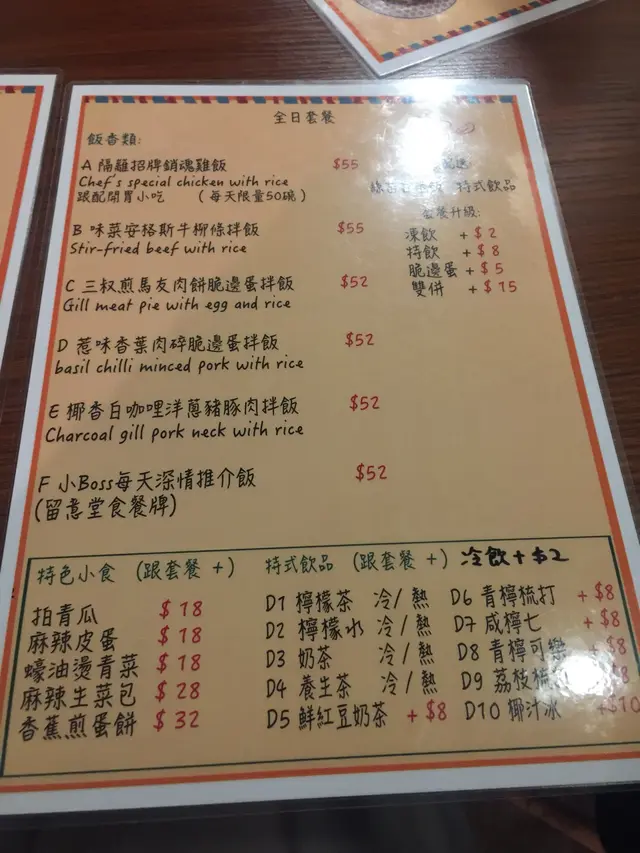 全日套餐
飯香類:
A 隔離招牌銷魂雞飯 $55
Chef's special chicken with rice
跟配開胃小吃 (每天限量50碗)
B 味菜安格斯牛柳條拌飯 $55
Stir-fried beef with rice
C 三叔煎馬友肉餅脆邊蛋拌飯 $52
Gill meat pie with egg and rice
D 惹味香葉肉碎脆邊蛋拌飯 $52
basil chilli minced pork with rice
E 椰香白咖哩洋蔥豬豚肉拌飯 $52
Charcoal gill pork neck with rice
F 小Boss每天深情推介飯 $52
(留意堂食餐牌)
特式飲品
套餐升級:
凍飲 +$2
特飲 +$8
脆邊蛋 +$5
雙併 +$15
特色小食 (跟套餐 +)
拍青瓜 $18
麻辣皮蛋 $18
蠔油燙青菜 $18
麻辣生菜包 $28
香蕉煎蛋餅 $32
特式飲品 (跟套餐 +) 冷飲+$2
D1 檸檬茶 冷/熱
D2 檸檬水 冷/熱
D3 奶茶 冷/熱
D4 養生茶 冷/熱
D5 鮮紅豆奶茶 +$8
D6 青檸梳打 +$8
D7 咸檸七 +$8
D8 青檸可樂 +$8
D9 荔枝
D10 椰汁冰 +$10